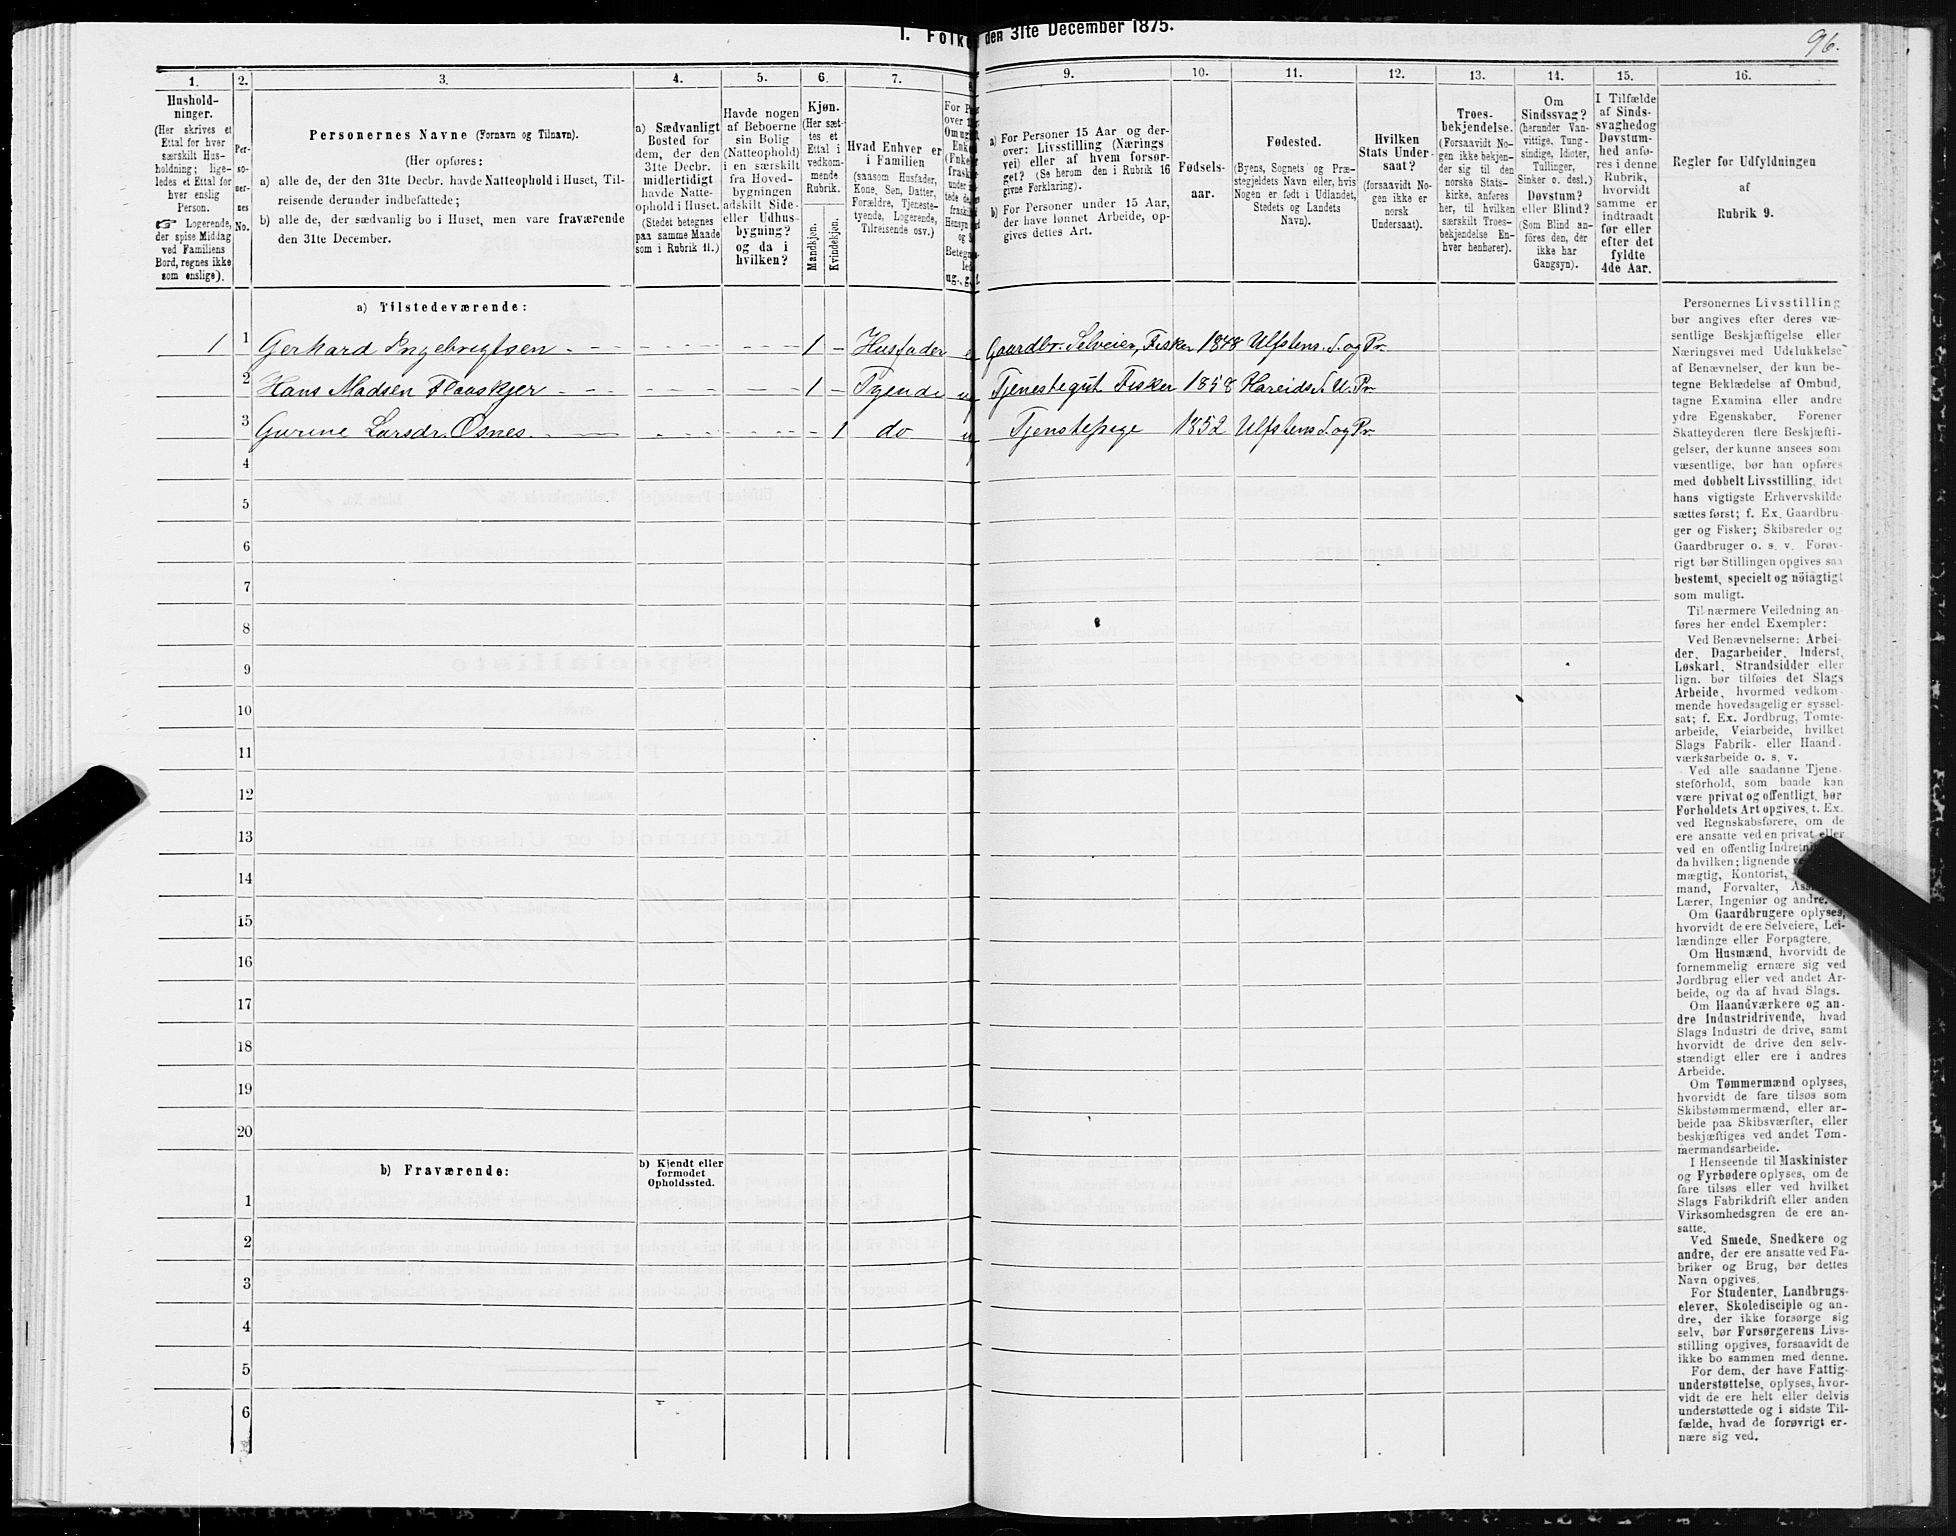 1. Folke den 31te December 1875.
96.
1. 2. 3. 4. 5. 6. 7. 9. 10. 11. 12. 13. 14. 15. 16.
Hushold-
ninger.
(Her skrives et
Ettal for hver
særskilt Hus-
holdning; lige-
ledes et Ettal for
hver enslig
Person.
☞ Logerende,
der spise Middag
ved Familiens
Bord, regnes ikke
som enslige).
Per-
so-
ner-
nes
No.
Personernes Navne (Fornavn og Tilnavn).
(Her opføres:
a) alle de, der den 31te Decbr. havde Natteophold i Huset, Til-
reisende derunder indbefattede;
b) alle de, der sædvanlig bo i Huset, men vare fraværende
den 31te December.
a) Sædvanligt
Bosted for
dem, der den
31te Decbr.
midlertidigt
havde Natte-
ophold i Huset.
(Stedet betegnes
paa samme Maade
som i Rubrik 11.)
Havde nogen
af Beboerne
sin Bolig
(Natteophold)
i en særskilt
fra Hoved-
bygningen
adskilt Side-
eller Udhus-
bygning?
og da i
hvilken?
Kjøn.
(Her sæt-
tes et
Ettal i
vedkom-
mende
Rubrik.
Mandkjøn.
Kvindekjøn.
Hvad Enhver er
i Familien
(saasom Husfader,
Kone, Søn, Datter,
Forældre, Tjeneste-
tyende, Logerende,
Tilreisende osv.)
For P
over 1
Om ug
Enke
(Enke
fraski
under
tede de
fraski
Hensyn
og S
Betegn
led
ug., g
a) For Personer 15 Aar og der-
over: Livsstilling (Nærings
vei) eller af hvem forsør-
get? (Se herom den i Rubrik 16
givne Forklaring).
b) For Personer under 15 Aar,
der have lønnet Arbeide, op-
gives dettes Art.
Fødsels-
aar.
Fødested.
(Byens, Sognets og Præ-
stegjeldets Navn eller, hvis
Nogen er født i Udlandet,
Stedets og Landets
Navn).
Hvilken
Stats Under-
saat?
(forsaavidt No-
gen ikke er
norsk
Undersaat).
Troes-
bekjendelse.
(Forsaavidt No-
gen ikke bekjen-
der sig til den
norske Stats-
kirke, anføres
her, til hvilken
særskilt Troes-
bekjendelse En-
hver henhører).
Om
Sindssvag?
(herunder Van-
vittige, Tung-
sindige, Idioter,
Tullinger,
Sinker o. desl.)
Døvstum?
eller Blind?
(Som Blind an-
føres den, der
ikke har
Gangsyn).
I Tilfælde
af Sinds-
svaghed og
Døvstum-
hed anfø-
res i denne
Rubrik,
hvorvidt
samme er
indtraadt
før eller
efter det
fyldte
4de Aar.
Regler for Udfyldningen
af
Rubrik 9.
a) Tilstedeværende:
1 1 Gerhard Ingebrigtsen 1 - Husfader Gaardbr. Selveier, Fisker 1848 Ulfstens S. og Pr.
2 Hans Madsen Flaaskjer 1 - Tyende Tjenestegut Fisker 1858 Hareids S. U. Pr.
3 Gurine Larsdr. Osnes 1 do Tjenstepige 1852 Ulfstens S. og Pr.
4
5
6
7
8
9
10
11
12
13
14
15
16
17
18
19
20
b) Fraværende:
b) Kjendt eller
formodet
Opholdssted.
1
2
3
4
5
6
Personernes Livsstilling
bør angives efter deres væ-
sentlige Beskjæftigelse eller
Næringsvei med Udelukkelse
af Benævnelser, der kun be-
tegne Beklædelse af Ombud,
tagne Examina eller andre
ydre Egenskaber. Forener
Skatteyderen flere Beskjæfti-
gelser, der kunne ansees som
væsentlige, bør han opføres
med dobbelt Livsstilling, idet
hans vigtigste Erhvervskilde
sættes først; f. Ex. Gaardbru-
ger og Fisker; Skibsreder og
Gaardbruger o. s. v. Forøv-
rigt bør Stillingen opgives saa
bestemt, specielt og nöiagtigt
som muligt.
Til nærmere Veiledning an-
føres her endel Exempler:
Ved Benævnelserne: Arbei-
der, Dagarbeider, Inderst,
Løskarl, Strandsidder eller
lign. bør tilføies det Slags
Arbeide, hvormed vedkom-
mende hovedsagelig er syssel-
sat; f. Ex. Jordbrug, Tomte-
arbeide, Veiarbeide, hvilket
Slags Fabrik- eller Haand-
værksarbeide o. s. v.
Ved alle saadanne Tjene-
steforhold, som baade kan
være privat og offentligt, bør
Forholdets Art opgives, t. Ex.
ved Regnskabsførere, om de
ere ansatte ved en privat eller
ved en offentlig Indretni
da hvilken; lignende ve
mægtig, Kontorist,
mand, Forvalter, Ass
Lærer, Ingeniør og andre.
Om Gaardbrugere oplyses,
hvorvidt de ere Selveiere, Lei-
lændinge eller Forpagtere.
Om Husmænd, hvorvidt de
fornemmelig ernære sig ved
Jordbrug eller ved andet Ar-
beide, og da af hvad Slags.
Om Haandværkere og an-
dre Industridrivende, hvad
Slags Industri de drive, samt
hvorvidt de drive den selv-
stændigt eller ere i andres
Arbeide.
Om Tømmermænd oplyses,
hvorvidt de fare tilsøs som
Skibstømmermænd, eller ar-
beide paa Skibsværfter, eller
beskjæftiges ved andet Tøm-
mermandsarbeide.
I Henseende til Maskinister
og Fyrbødere oplyses, om de
fare tilsøs eller ved hvilket
Slags Fabrikdrift eller anden
Virksomhedsgren de ere an-
satte.
Ved Smede, Snedkere og
andre, der ere ansatte ved Fa-
briker og Brug, bør dettes
Navn opgives.
For Studenter, Landbrugs-
elever, Skoledisciple og an-
dre, der ikke forsørge sig
selv, bør Forsørgerens Livs-
stilling opgives, forsaavidt de
ikke bo sammen med denne.
For dem, der have Fattig-
understøttelse, oplyses, hvor-
vidt de ere helt eller delvis
understøttede og i sidste Til-
fælde, hvad de forøvrigt er-
nære sig ved.